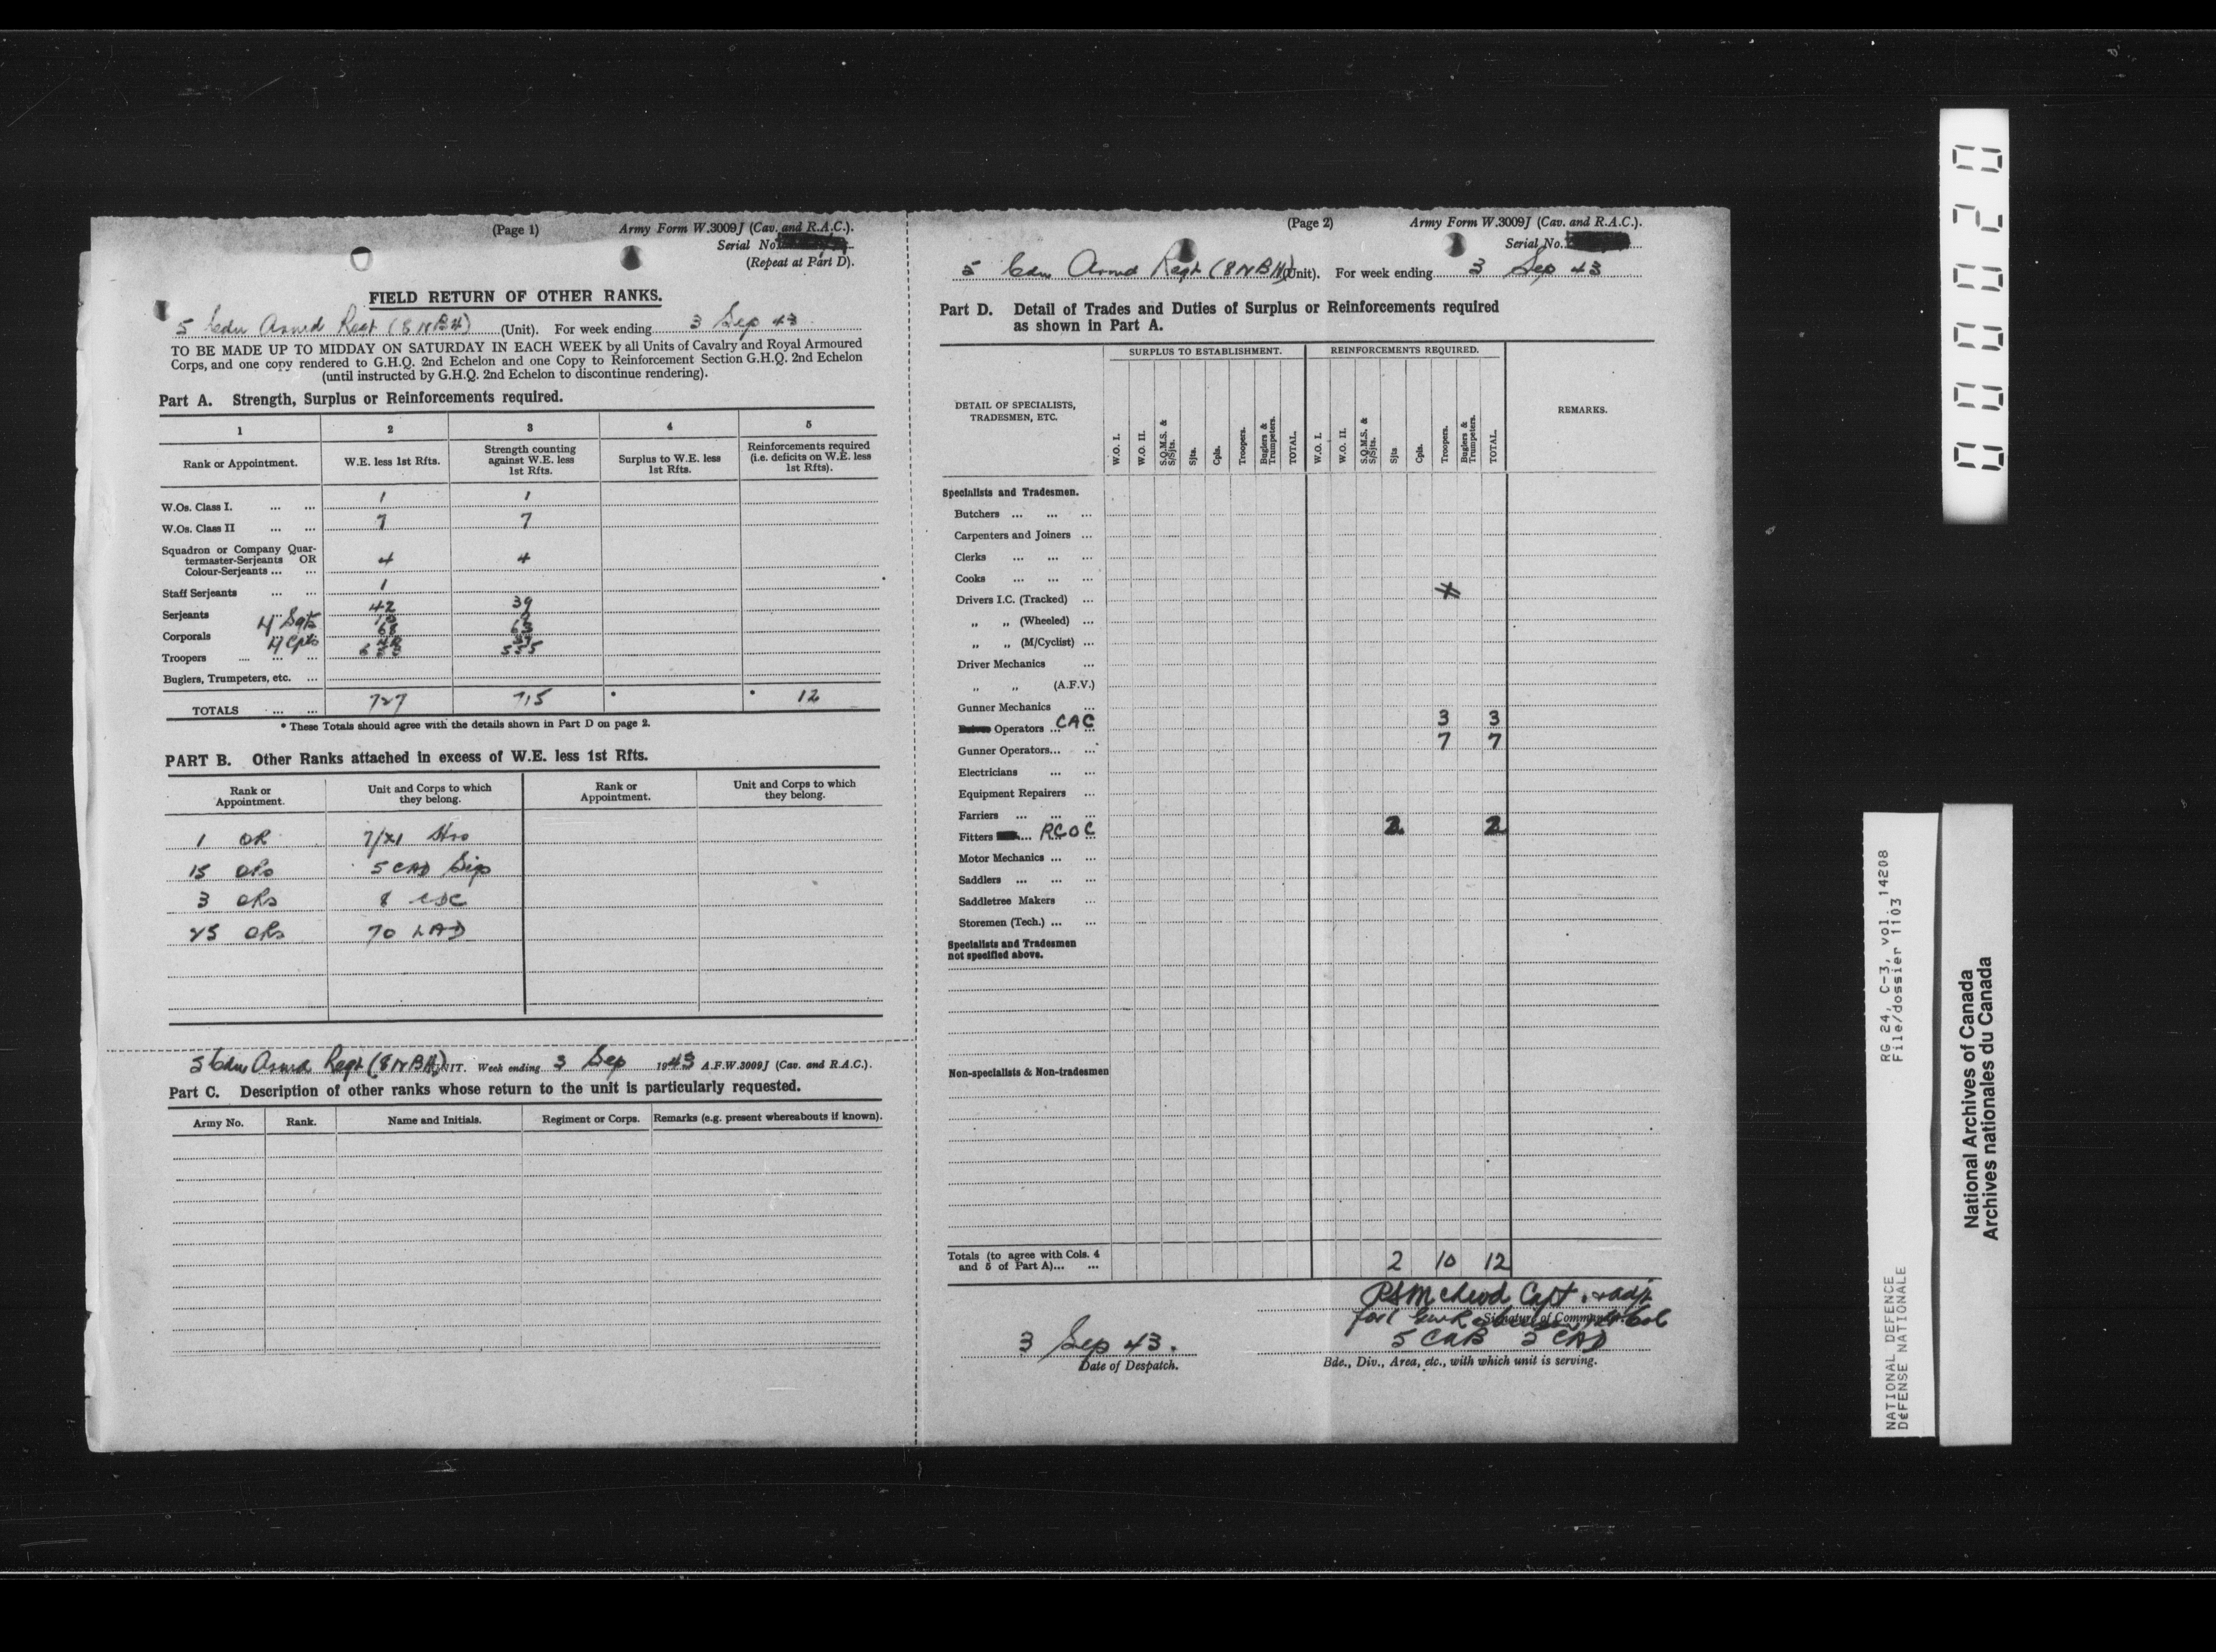 (Page 1) Army Form W.3009J (Cav. and R.A.C.).
Serial No.
(Repeat at Part D).
FIELD RETURN OF OTHER RANKS.
5 Cdn Armd Regt (8 NBH) (Unit). For week ending 3 Sep 43
TO BE MADE UP TO MIDDAY ON SATURDAY IN EACH WEEK by all Units of Cavalry and Royal Armoured
Corps, and one copy rendered to G.H.Q. 2nd Echelon and one Copy to Reinforcement Section G.H.Q. 2nd Echelon
(until instructed by G.H.Q. 2nd Echelon to discontinue rendering).
Part A. Strength, Surplus or Reinforcements required.
1 2 3 4 5
Rank or Appointment. W.E. less 1st Rfts. Strength counting against W.E. less 1st Rfts. Surplus to W.E. less 1st Rfts. Reinforcements required (i.e. deficits on W.E. less 1st Rfts).
W.Os. Class I. ... ... 1 1
W.Os. Class II ... ... 7 7
Squadron or Company Quar-
termaster-Serjeants OR 4 4
Colour-Serjeants ... ...
Staff Serjeants ... ... 1
Serjeants 42 39
Corporals
Troopers ... ... ... 555
Buglers, Trumpeters, etc. ...
TOTALS ... ... 727 715 * * 12
* These Totals should agree with the details shown in Part D on page 2.
PART B. Other Ranks attached in excess of W.E. less 1st Rfts.
Rank or Appointment. Unit and Corps to which they belong. Rank or Appointment. Unit and Corps to which they belong.
1 OR
15 ORs 5 CAD Sigs
3 ORs 8
25 ORs 70 LAD
5 Cdn Armd Regt (8 NBH) UNIT. Week ending 3 Sep 1943 A.F.W.3009J (Cav. and R.A.C.).
Part C. Description of other ranks whose return to the unit is particularly requested.
Army No. Rank. Name and Initials. Regiment or Corps. Remarks (e.g. present whereabouts if known).
(Page 2) Army Form W.3009J (Cav. and R.A.C.).
Serial No.
5 Cdn Armd Regt (8 NBH) (Unit). For week ending 3 Sep 43
Part D. Detail of Trades and Duties of Surplus or Reinforcements required
as shown in Part A.
DETAIL OF SPECIALISTS, TRADESMEN, ETC. SURPLUS TO ESTABLISHMENT. REINFORCEMENTS REQUIRED. REMARKS.
W.O. I. W.O. II. S.Q.M.S. & S/Sjts. Sjts. Cpls. Troopers. Buglers & Trumpeters. TOTAL. W.O. I. W.O. II. S.Q.M.S. & S/Sjts. Sjts Cpls. Troopers. Buglers & Trumpeters. TOTAL.
Specialists and Tradesmen.
Butchers ... ... ...
Carpenters and Joiners ...
Clerks ... ... ...
Cooks ... ... ...
Drivers I.C. (Tracked) ...
„ „ (Wheeled) ...
„ „ (M/Cyclist) ...
Driver Mechanics ...
„ „ (A.F.V.)
Gunner Mechanics ...
Operators ... CAC 3 3
Gunner Operators... ... 7 7
Electricians ... ...
Equipment Repairers ...
Farriers ... ... ...
Fitters ... RCOC 2 2
Motor Mechanics ... ...
Saddlers ... ... ...
Saddletree Makers ...
Storemen (Tech.) ... ...
Specialists and Tradesmen
not specified above.
Non-specialists & Non-tradesmen
Totals (to agree with Cols. 4
and 5 of Part A)... ... 2 10 12
Capt. & adjt
Signature of Commander.
5 CAB 5 CAD
3 Sep 43.
Date of Despatch. Bde., Div., Area, etc., with which unit is serving.
00020
RG 24, C-3, vol. 14208
File/dossier 1103
NATIONAL DEFENCE
DÉFENSE NATIONALE
National Archives of Canada
Archives nationales du Canada